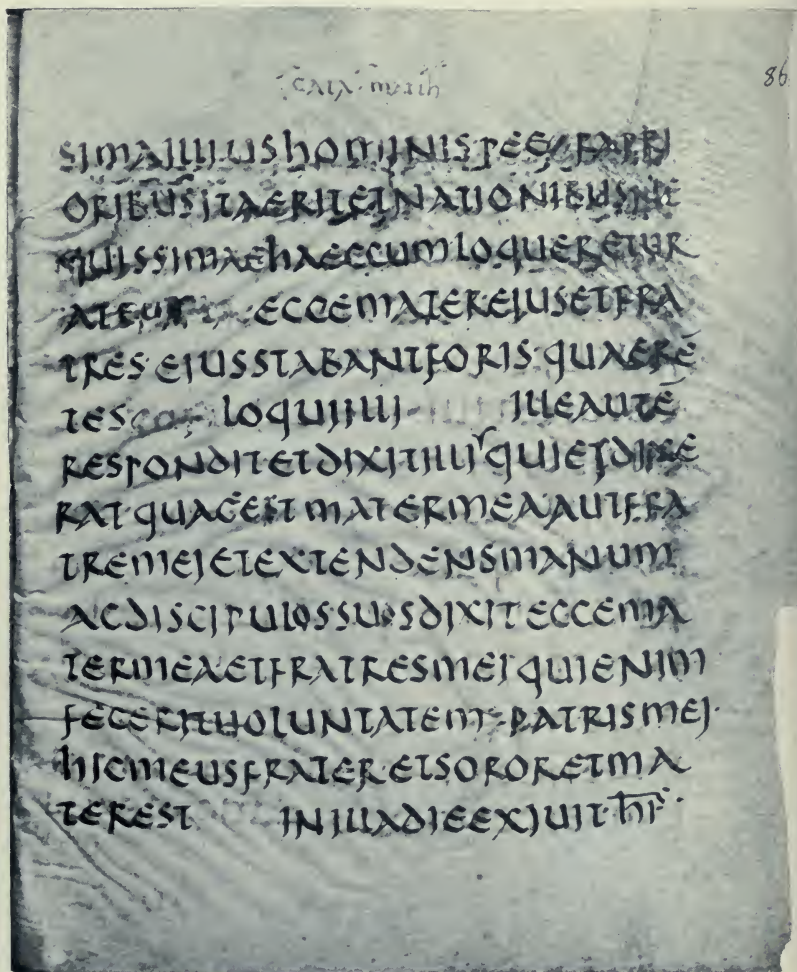 CATA MATTH
86
SIMAILLIUSHOMINIS
ORIBUSITAERITETNATIONIBUSNE
QUISSIMAEHAECCUMLOQUERETUR
ECCEMATEREIUSETFRA
TRESEIUSSTABANTFORISQUAERĒ
TES LOQUIILLI ILLEAUTĒ
RESPONDITETDIXITILLI QUIEIDIXE
RATQUAEESTMATERMEAAUTFRA
TREMEIETEXTENDENSMANUM
ACDISCIPULOSSUOSDIXITECCEMA
TERMEAETFRATRESMEIQUIENIM
FECERITUOLUNTATEMPATRISMEI·
HICMEUSFRATERETSORORETMA
TEREST INILLADIEEXIUIT